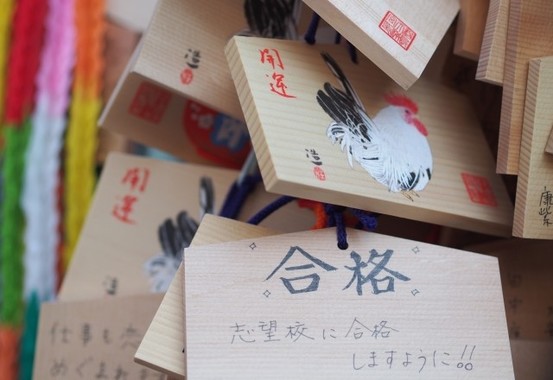 開運
浩
開運
浩
浩
合格
志望校に合格
しますように!!
仕事も
めぐまれ
康紫